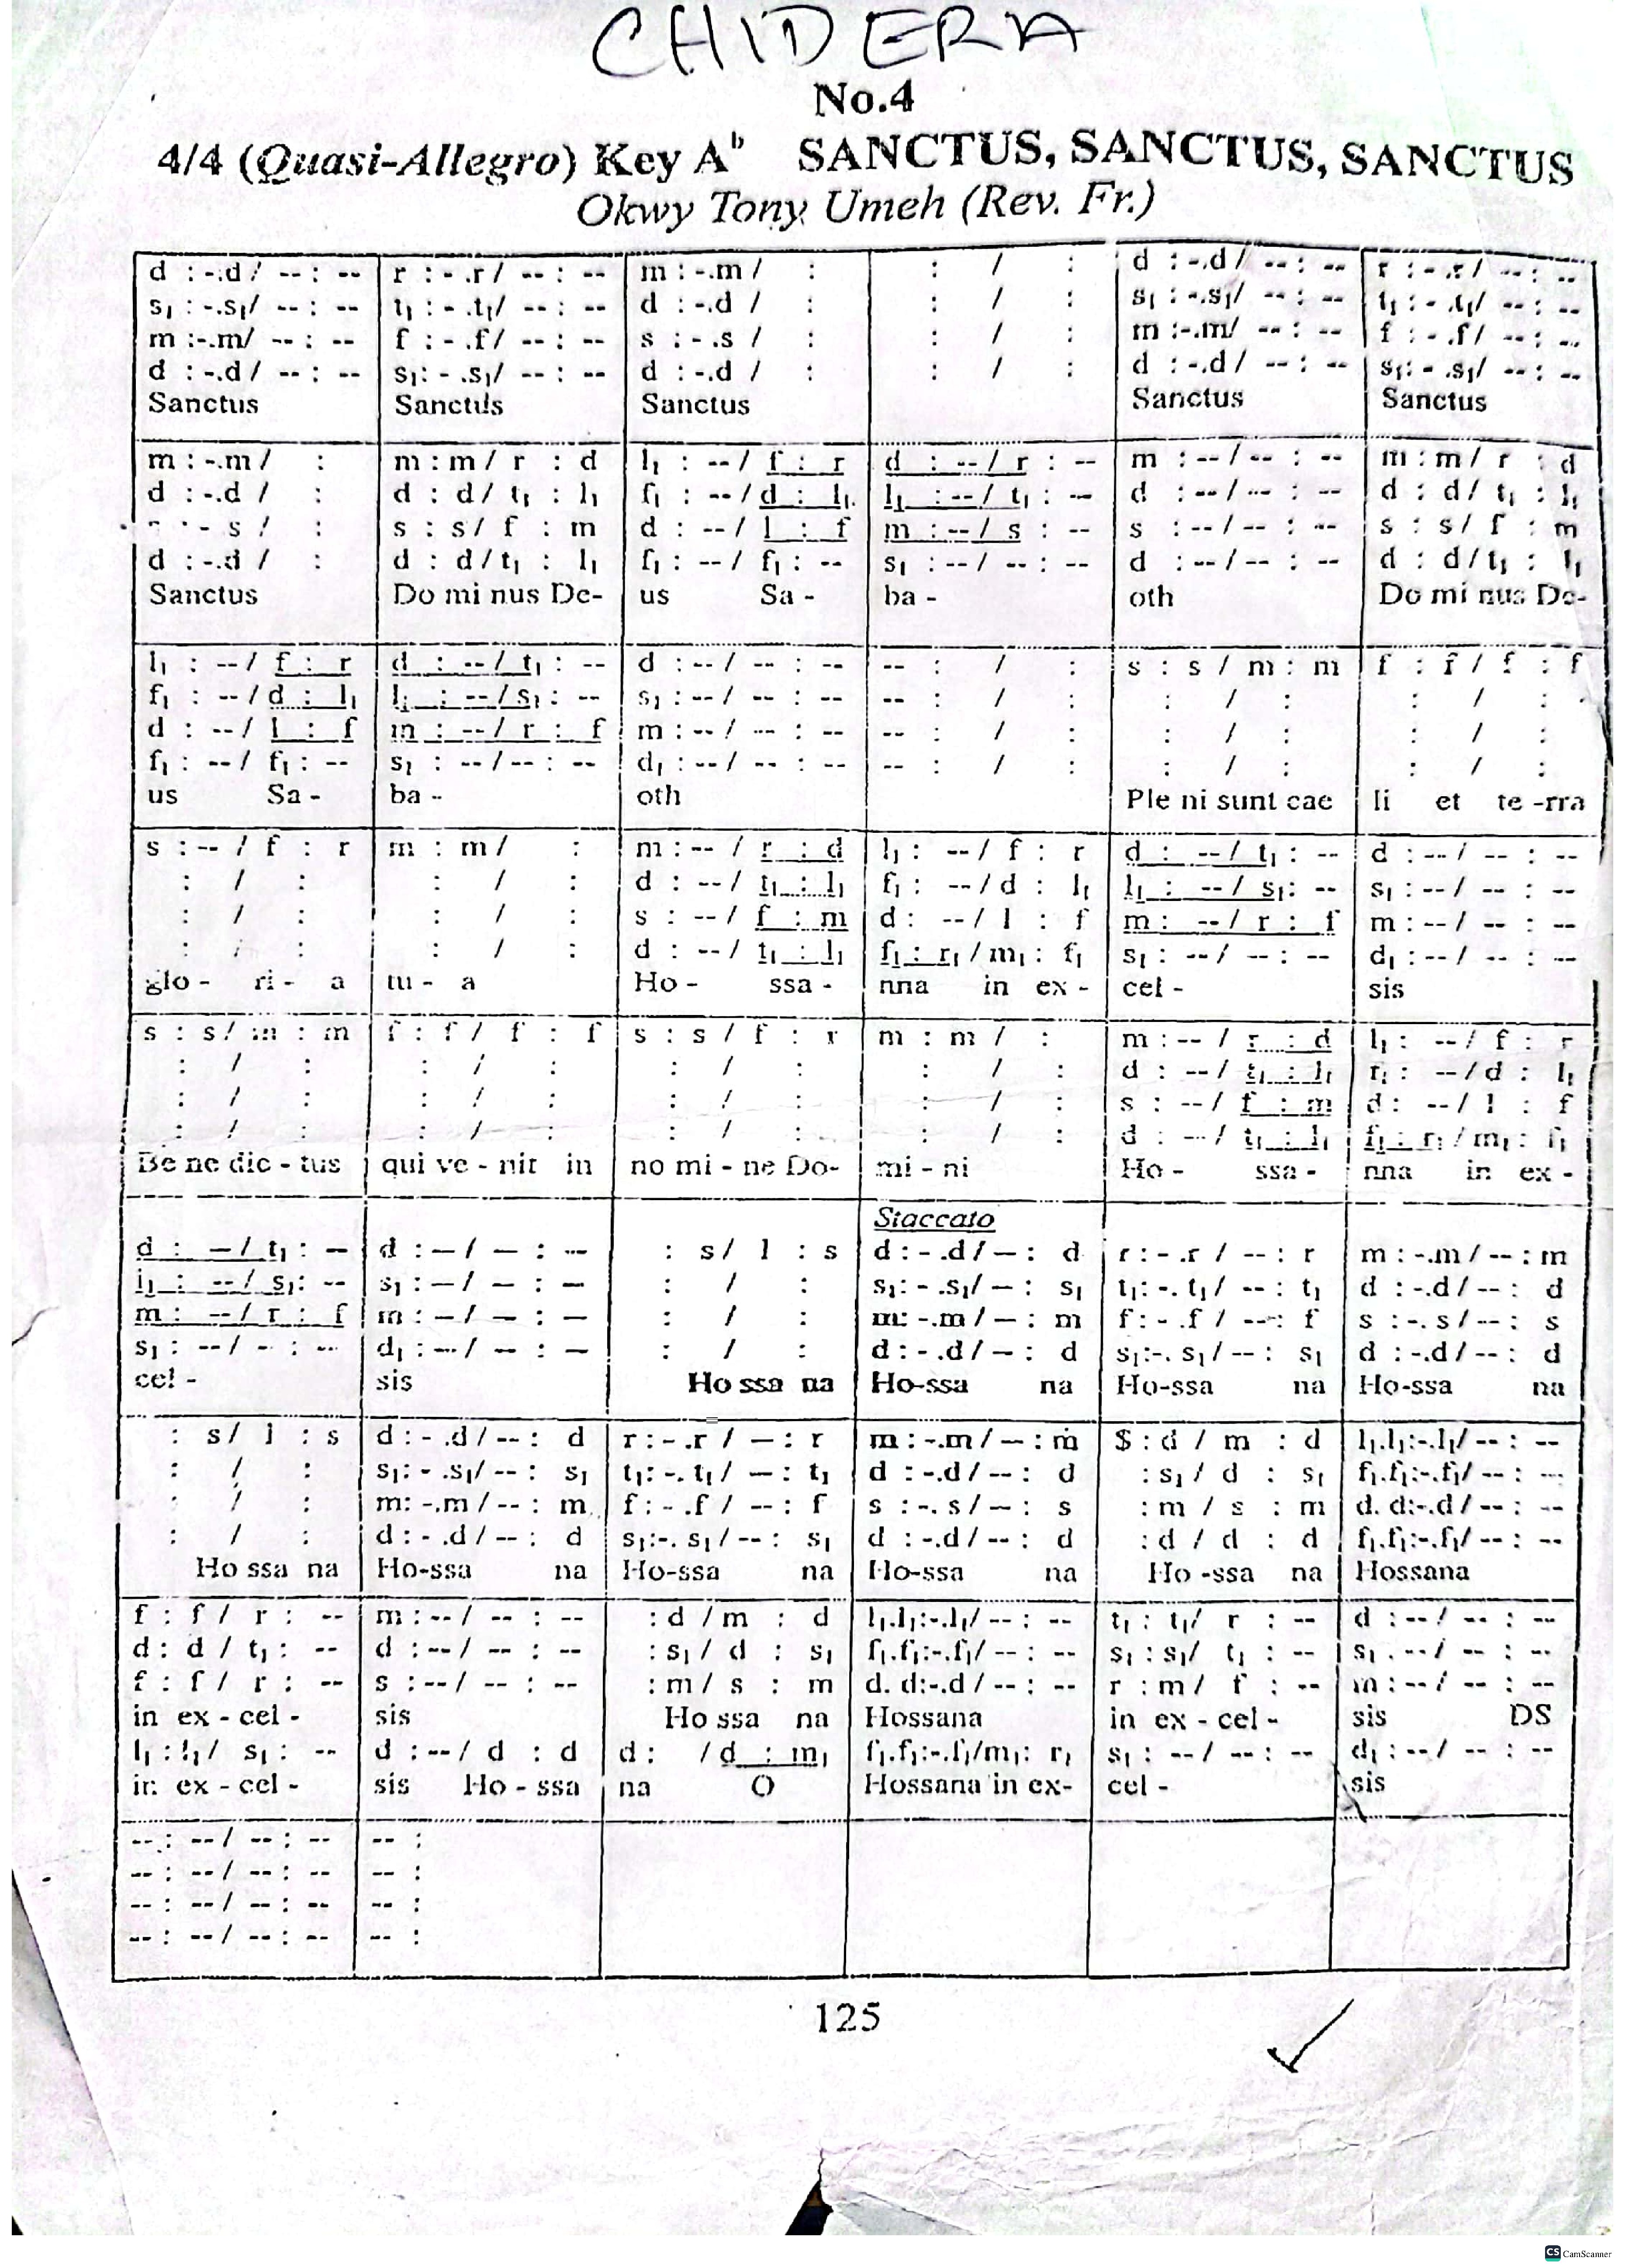 CHIDERA
No.4
4/4 (Quasi-Allegro) Key Aᵇ SANCTUS, SANCTUS, SANCTUS
Okwy Tony Umeh (Rev. Fr.)
d :-.d/ -- : -- | r : - .r/ -- : -- | m :-.m/ : | : / : | d :-.d/ -- : -- | r : - .r/ -- : --
s₁ :-.s₁/ -- : -- | t₁ : - .t₁/ -- : -- | d :-.d / : | : / : | s₁ :-.s₁/ -- : -- | t₁ : - .t₁/ -- : --
m :-.m/ -- : -- | f : - .f/ -- : -- | s : - .s / : | : / : | m :-.m/ -- : -- | f : - .f/ -- : --
d :-.d/ -- : -- | s₁: - .s₁/ -- : -- | d :-.d / : | : / : | d :-.d/ -- : -- | s₁: - .s₁/ -- : --
Sanctus | Sanctus | Sanctus | | Sanctus | Sanctus
m :-.m/ : | m : m/ r : d | l₁ : --/ f : r | d : --/ r : -- | m :--/ -- : -- | m : m/ r : d
d :-.d / : | d : d/ t₁ : l₁ | f₁ : --/ d : l₁ | l₁ : --/ t₁ : -- | d :--/ -- : -- | d : d/ t₁ : l₁
- s / : | s : s/ f : m | d : --/ l : f | m : --/ s : -- | s :--/ -- : -- | s : s/ f : m
d :-.d / : | d : d/t₁ : l₁ | f₁ : --/ f₁ : -- | s₁ :--/ -- : -- | d :--/ -- : -- | d : d/t₁ : l₁
Sanctus | Do mi nus De- | us Sa - | ba - | oth | Do mi nus De-
l₁ : --/ f : r | d : --/ t₁ : -- | d :--/ -- : -- | -- : / : | s : s / m : m | f : f / f : f
f₁ : --/ d : l₁ | l₁ : --/s₁ : -- | s₁ :--/ -- : -- | -- : / : | : / : | : / :
d : --/ l : f | m : --/ r : f | m :--/ -- : -- | -- : / : | : / : | : / :
f₁ : --/ f₁ : -- | s₁ : --/-- : -- | d₁ :--/ -- : -- | -- : / : | : / : | : / :
us Sa - | ba - | oth | | Ple ni sunt cae | li et te -rra
s :-- / f : r | m : m/ : | m :-- / r : d | l₁ : --/ f : r | d : --/ t₁ : -- | d :--/ -- : --
: / : | : / : | d : --/ t₁ : l₁ | f₁ : --/d : l₁ | l₁ : --/ s₁: -- | s₁ :--/ -- : --
: / : | : / : | s : --/ f : m | d: --/ l : f | m : --/ r : f | m :--/ -- : --
: / : | : / : | d : --/ t₁ : l₁ | f₁ : r₁ / m₁ : f₁ | s₁ : --/ -- : -- | d₁ :--/ -- : --
glo - ri - a | tu - a | Ho - ssa - | nna in ex - | cel - | sis
s : s/ m : m | f : f / f : f | s : s / f : r | m : m / : | m :-- / r : d | l₁ : --/ f : r
: / : | : / : | : / : | : / : | d : --/ t₁ : l₁ | f₁ : --/d : l₁
: / : | : / : | : / : | : / : | s : --/ f : m | d: --/ l : f
: / : | : / : | : / : | : / : | d : --/ t₁ : l₁ | f₁ : r₁ / m₁ : f₁
Be ne dic - tus | qui ve - nit in | no mi - ne Do- | mi - ni | Ho - ssa - | nna in ex -
Staccato
d : —/ t₁ : — | d :—/ — : -- | : s/ l : s | d :- .d/—: d | r :- .r / -- : r | m :-.m/-- : m
l₁ : --/ s₁: -- | s₁ :—/ — : — | : / : | s₁: - .s₁/—: s₁ | t₁: -. t₁/ -- : t₁ | d :-.d/-- : d
m : --/ r : f | m :—/ — : — | : / : | m: -.m /—: m | f : - .f / --: f | s :-. s/-- : s
s₁ : --/ - : -- | d₁ :—/ — : — | : / : | d :- .d/—: d | s₁:-. s₁/-- : s₁ | d :-.d/-- : d
cel - | sis | Ho ssa na | Ho-ssa na | Ho-ssa na | Ho-ssa na
: s/ l : s | d :- .d/-- : d | r :- .r / — : r | m :-.m/—: m | $ : d / m : d | l₁.l₁:-.l₁/ -- : --
: / : | s₁: - .s₁/-- : s₁ | t₁: -. t₁/ — : t₁ | d :-.d/-- : d | : s₁/ d : s₁ | f₁.f₁:-.f₁/ -- : --
: / : | m: -.m /-- : m | f : - .f / -- : f | s :-. s/—: s | : m / s : m | d. d:-.d/ -- : --
: / : | d :- .d/-- : d | s₁:-. s₁/-- : s₁ | d :-.d/-- : d | : d / d : d | f₁.f₁:-.f₁/ -- : --
Ho ssa na | Ho-ssa na | Ho-ssa na | Ho-ssa na | Ho -ssa na | Hossana
f : f / r : -- | m :--/ -- : -- | : d / m : d | l₁.l₁:-.l₁/ -- : -- | t₁ : t₁/ r : -- | d :--/ -- : --
d : d / t₁ : -- | d :--/ -- : -- | : s₁ / d : s₁ | f₁.f₁:-.f₁/ -- : -- | s₁ : s₁/ t₁ : -- | s₁ :--/ -- : --
f : f / r : -- | s :--/ -- : -- | : m / s : m | d. d:-.d / -- : -- | r : m/ f : -- | m :--/ -- : --
in ex - cel - | sis | Ho ssa na | Hossana | in ex - cel - | sis DS
l₁ : l₁/ s₁ : -- | d :--/ d : d | d : /d : m₁ | f₁.f₁:-.f₁/m₁: r₁ | s₁ : --/ -- : -- | d₁ :--/ -- : --
in ex - cel - | sis Ho - ssa | na O | Hossana in ex- | cel - | sis
-- : --/ -- : -- | -- :
-- : --/ -- : -- | -- :
-- : --/ -- : -- | -- :
-- : --/ -- : -- | -- :
125
CS CamScanner